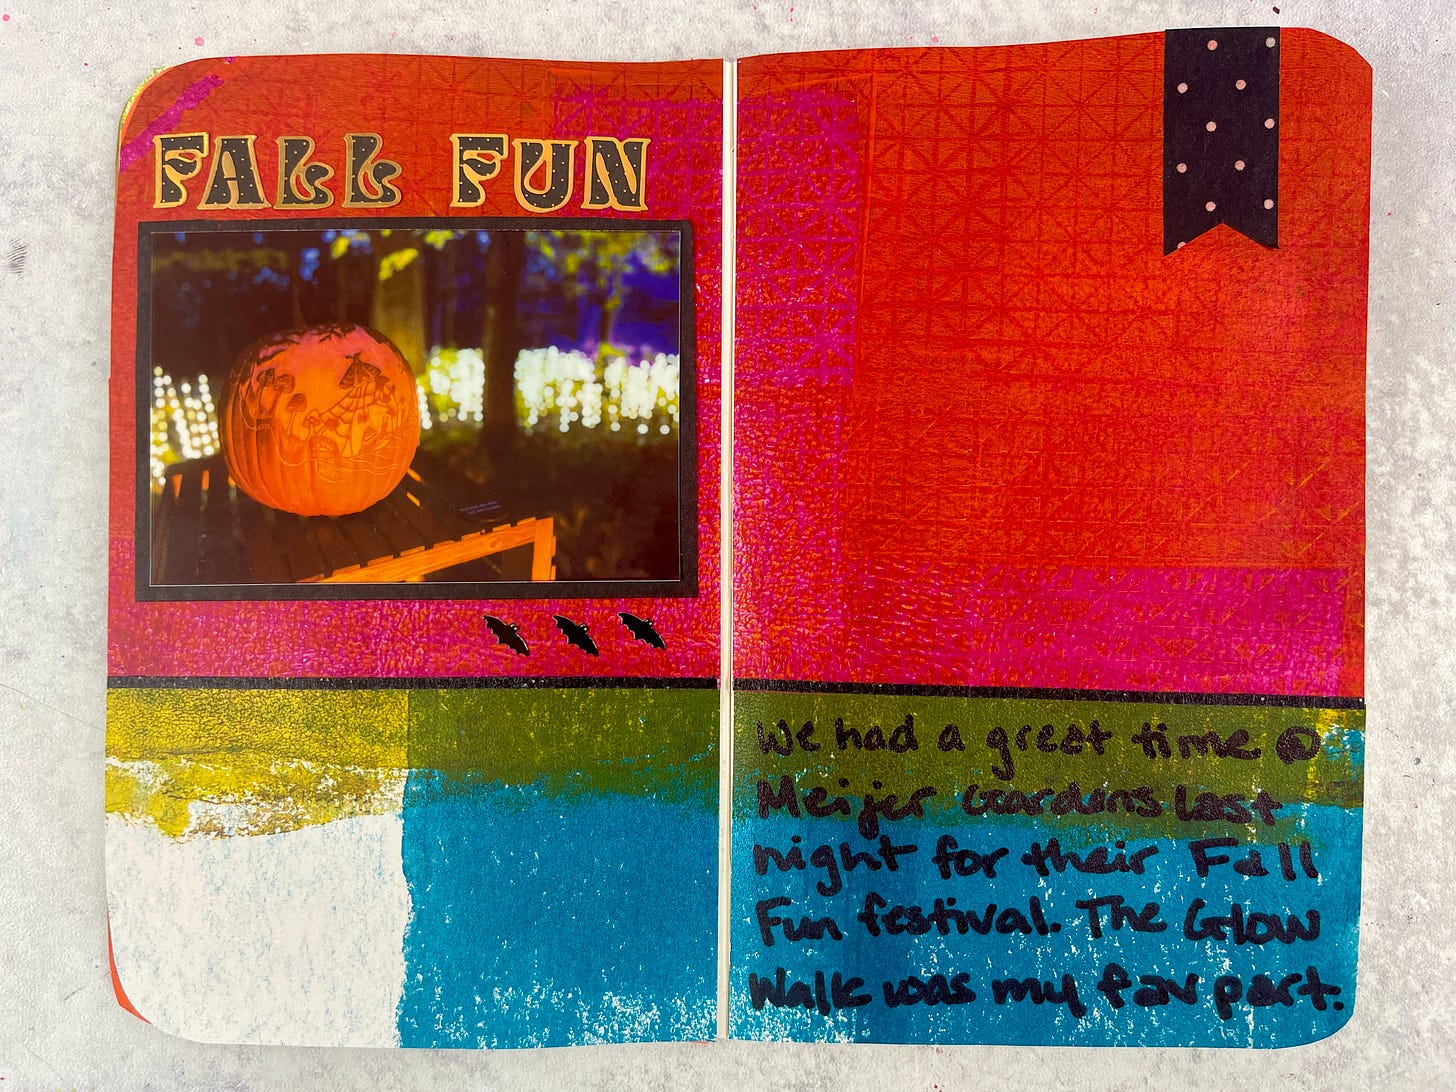 FALL FUN
We had a great time @
Meijer Gardens last
night for their Fall
Fun festival. The Glow
Walk was my fav part.